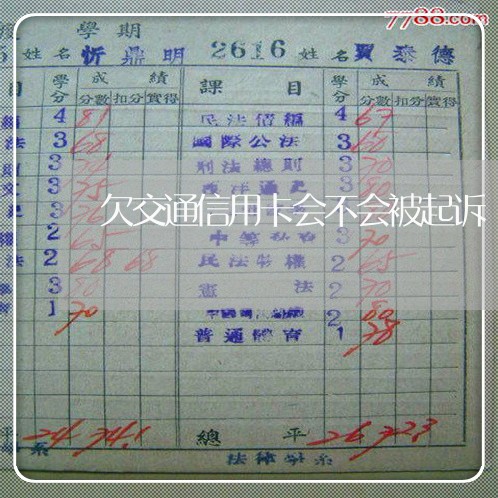 7788.com
度 學期
5 姓名 忻鼎明 2616 姓名 賈泰德
目 學分 成績 課目 學分 成績
分數 扣分 實得 分數 扣分 實得
4 81 民法債編 4 67
法 3 68 國際公法 3 60
則 3 刑法總則 3 70
3 75 3 80
欠交通信用卡会不会被起诉
3 76
2 65 3 70
法 2 68 68 民法物權 2 65
3 80 憲法 2 70
育 1 70 2 80
普通體育 1 78
平 24 74.1 總平 26 72.3
系 法律學系